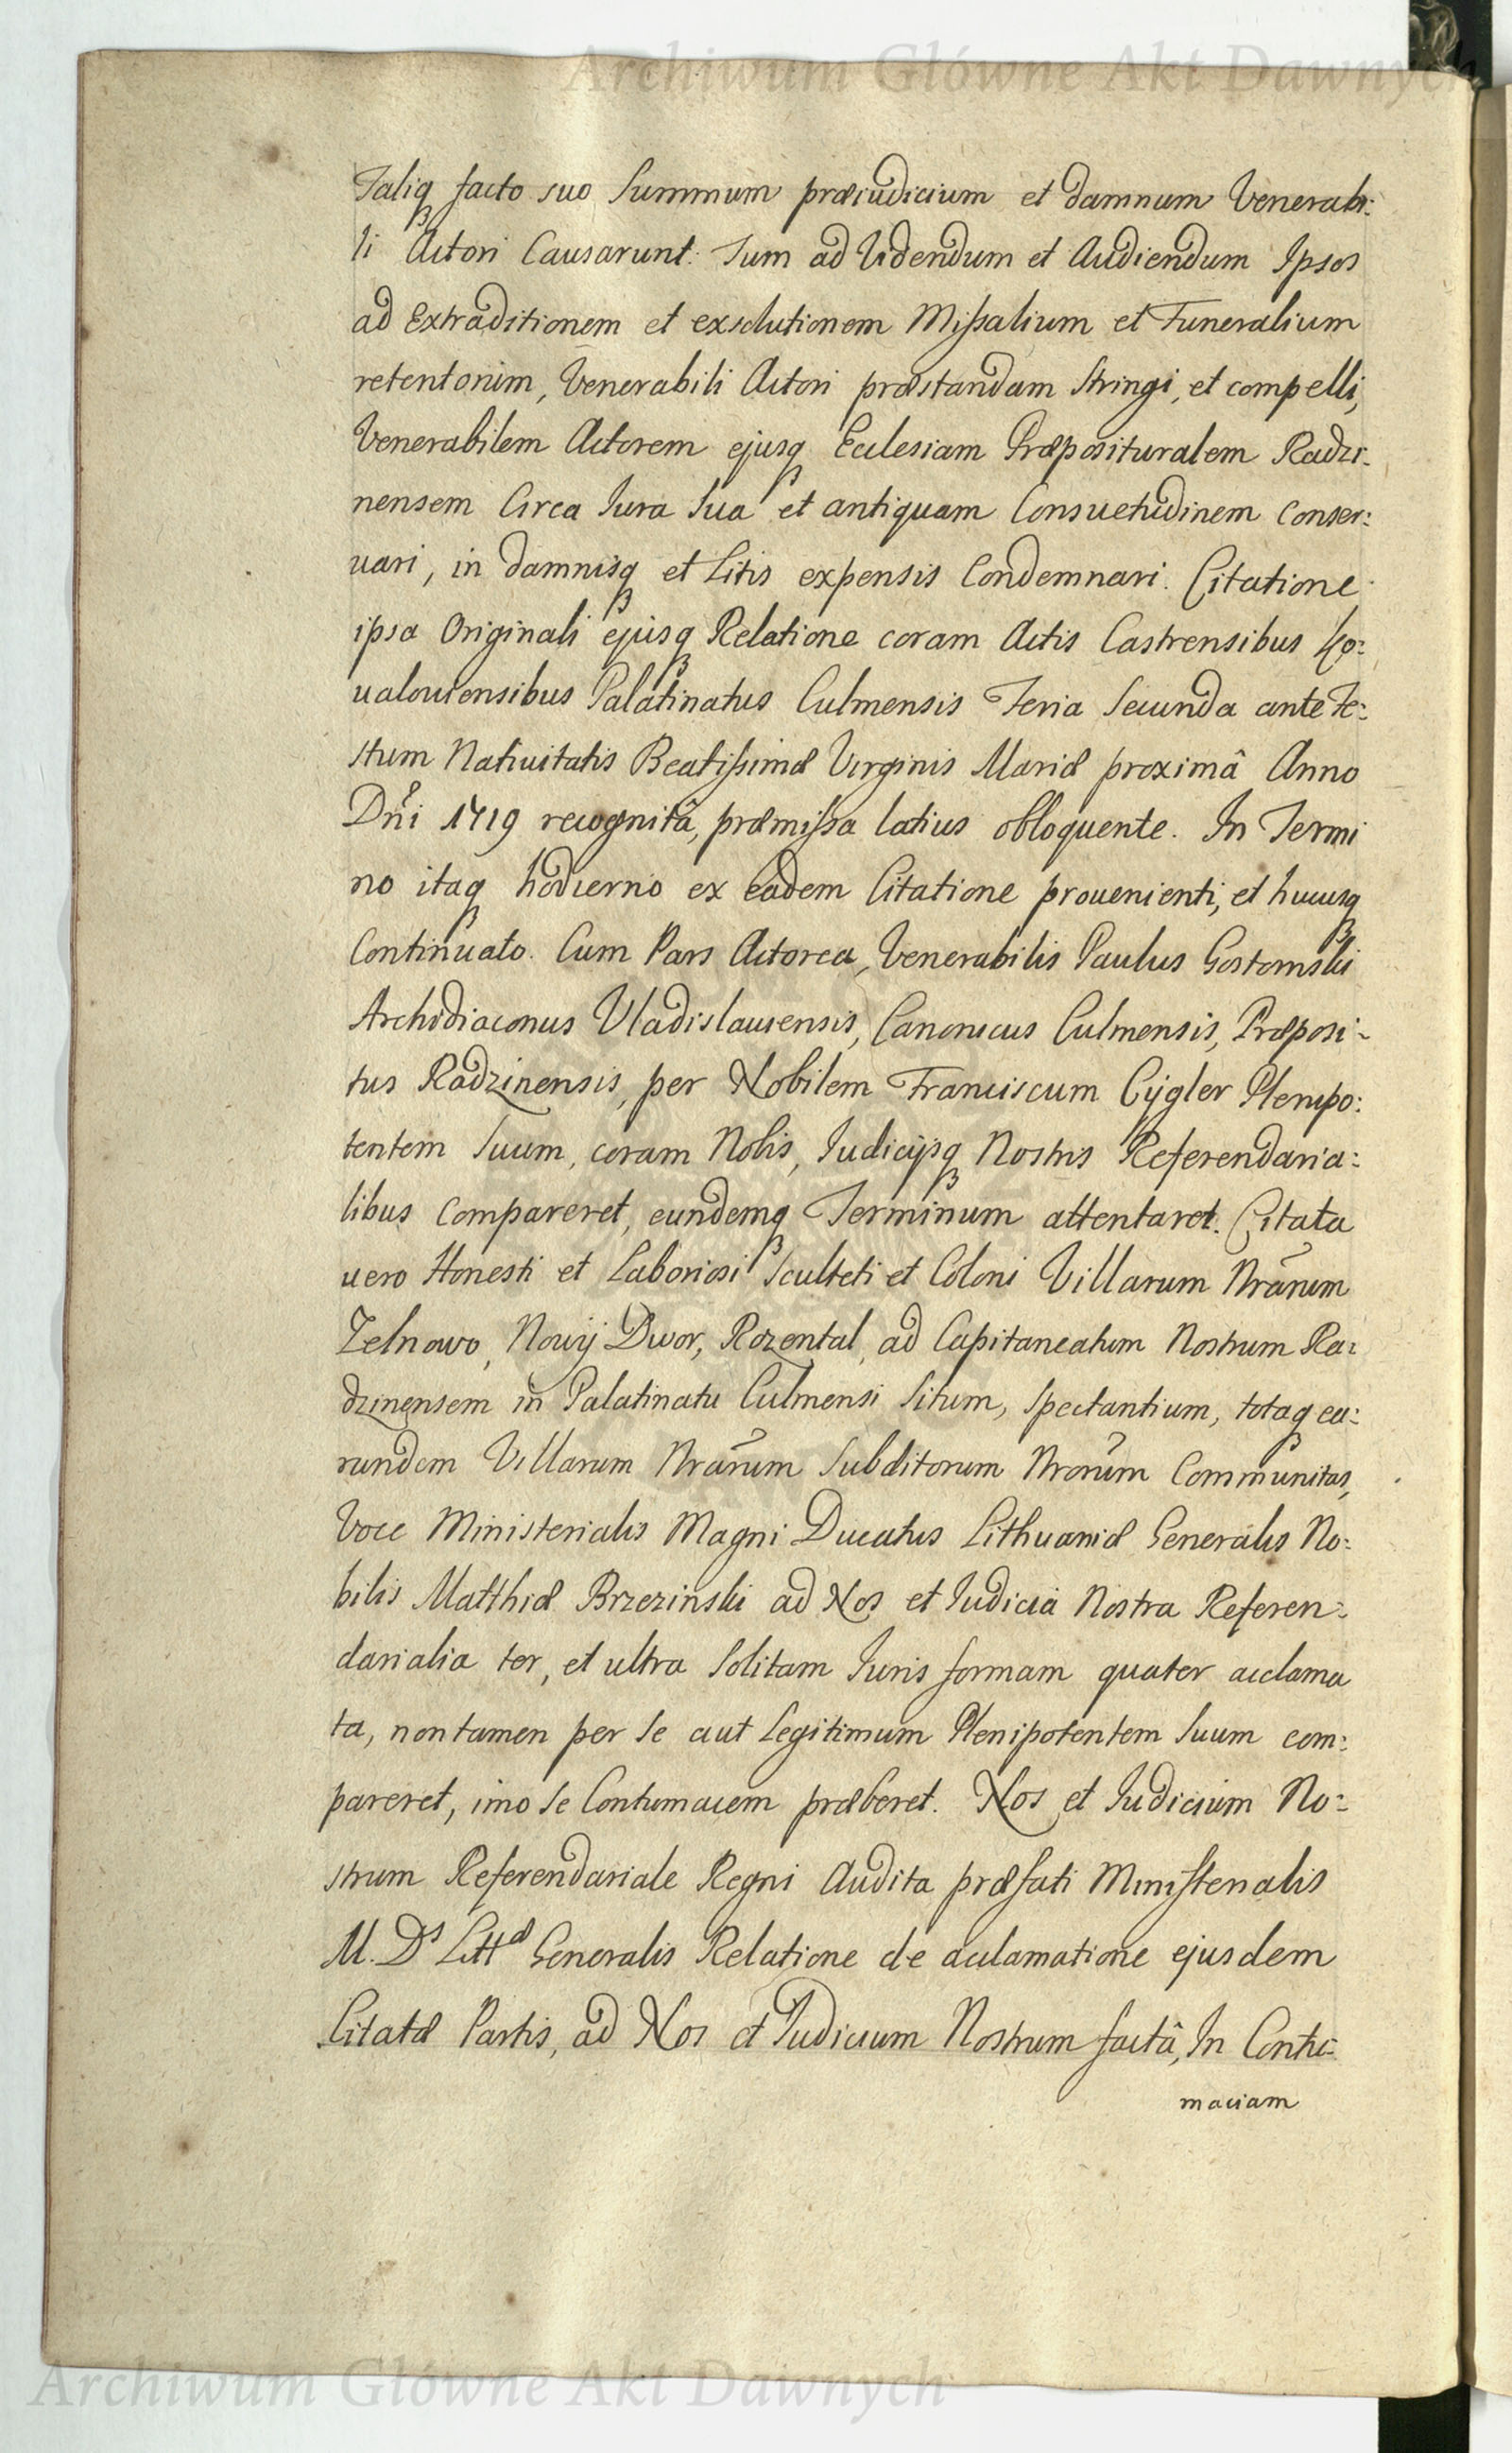 Archiwum Główne Akt Dawnych
Taliqꝫ facto suo Summum præiudicium et damnum Venerabi:
li Actori Causarunt. Tum ad Videndum et Audiendum Ipsos
ad Extraditionem et exsolutionem Missalium et Funeralium
retentorum, Venerabili Actori præstandam Stringi, et compelli,
Venerabilem Actorem ejusqꝫ Ecclesiam Præposituralem Radzi-
nensem Circa Iura Sua et antiquam Consuetudinem Conser:
uari, in damnisqꝫ et Litis expensis Condemnari. Citatione
ipsa Originali ejusqꝫ Relatione coram Actis Castrensibus Ko:
ualouiensibus Palatinatus Culmensis Feria Secunda ante Fe:
stum Natiuitatis Beatissimæ Virginis Mariæ proximâ Anno
Dn̄i 1719 recognitâ, præmissa latius obloquente. In Termi
no itaqꝫ hodierno ex eadem Citatione prouenienti, et hucusqꝫ
Continuato. Cum Pars Actorea, Venerabilis Paulus Gostomski
Archidiaconus Vladislauiensis, Canonicus Culmensis, Præposi-
tus Radzinensis, per Nobilem Franciscum Cygler Plenipo:
tentem Suum, coram Nobis, Iudicijsqꝫ Nostris Referendaria:
libus Compareret, eundemqꝫ Terminum attentaret. Citata
uero Honesti et Laboriosi Sculteti et Coloni Villarum Nrārum
Zelnowo, Nowy Dwor, Rozental, ad Capitaneatum Nostrum Ra:
dzinensem in Palatinatu Culmensi Situm, Spectantium, totaqꝫ ea:
rundem Villarum Nrārum Subditorum Nrorūm Communitas,
Voce Ministerialis Magni Ducatus Lithuaniæ Generalis No:
bilis Matthiæ Brzezinski ad Nos et Iudicia Nostra Referen:
darialia ter, et ultra Solitam Iuris formam quater acclama
ta, non tamen per Se aut Legitimum Plenipotentem Suum com:
pareret, imo Se Contumacem præberet. Nos et Iudicium No:
strum Referendariale Regni Audita præfati Ministerialis
M. Dˢ Littᵆ Generalis Relatione de acclamatione ejusdem
Citatæ Partis, ad Nos et Iudicium Nostrum factâ, In Contu:
maciam
Archiwum Główne Akt Dawnych